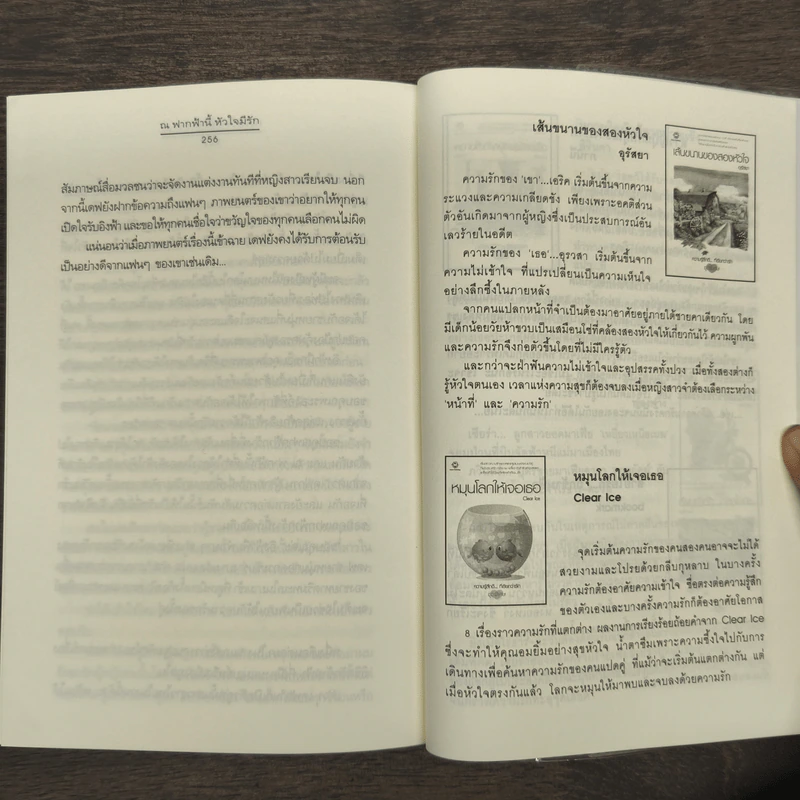 ณ ฟากฟ้านี้ หัวใจมีรัก
256
สัมภาษณ์สื่อมวลชนว่าจะจัดงานแต่งงานทันทีที่หญิงสาวเรียนจบ นอก
จากนี้เตฟยังฝากข้อความถึงแฟนๆ ภาพยนตร์ของเขาว่าอยากให้ทุกคน
เปิดใจรับอิงฟ้า และขอให้ทุกคนเชื่อใจว่าขวัญใจของทุกคนเลือกคนไม่ผิด
แน่นอนว่าเมื่อภาพยนตร์เรื่องนี้เข้าฉาย เตฟยังคงได้รับการต้อนรับ
เป็นอย่างดีจากแฟนๆ ของเขาเช่นเดิม...
เส้นขนานของสองหัวใจ
อุรัสยา
เส้นขนานของสองหัวใจ
อุรัสยา
ความรักของ 'เขา'...เอริค เริ่มต้นขึ้นจากความ
ระแวงและความเกลียดชัง เพียงเพราะอคติส่วน
ตัวอันเกิดมาจากผู้หญิงซึ่งเป็นประสบการณ์อัน
เลวร้ายในอดีต
ความรักของ 'เธอ'...อุรวสา เริ่มต้นขึ้นจาก
ความไม่เข้าใจ ที่แปรเปลี่ยนเป็นความเห็นใจ
อย่างลึกซึ้งในภายหลัง
จากคนแปลกหน้าที่จำเป็นต้องมาอาศัยอยู่ภายใต้ชายคาเดียวกัน โดย
มีเด็กน้อยวัยห้าขวบเป็นเสมือนโซ่ที่คล้องสองหัวใจให้เกี่ยวกันไว้ ความผูกพัน
และความรักจึงก่อตัวขึ้นโดยที่ไม่มีใครรู้ตัว
และกว่าจะฝ่าฟันความไม่เข้าใจและอุปสรรคทั้งปวง เมื่อทั้งสองต่างก็
รู้หัวใจตนเอง เวลาแห่งความสุขก็ต้องจบลงเมื่อหญิงสาวจำต้องเลือกระหว่าง
'หน้าที่' และ 'ความรัก'
หมุนโลกให้เจอเธอ
Clear Ice
หมุนโลกให้เจอเธอ
Clear Ice
จุดเริ่มต้นความรักของคนสองคนอาจจะไม่ได้
สวยงามและโปรยด้วยกลีบกุหลาบ ในบางครั้ง
ความรักต้องอาศัยความเข้าใจ ซื่อตรงต่อความรู้สึก
ของตัวเองและบางครั้งความรักก็ต้องอาศัยโอกาส
8 เรื่องราวความรักที่แตกต่าง ผลงานการเรียงร้อยถ้อยคำจาก Clear Ice
ซึ่งจะทำให้คุณอมยิ้มอย่างสุขหัวใจ น้ำตาซึมเพราะความซึ้งใจไปกับการ
เดินทางเพื่อค้นหาความรักของคนแปดคู่ ที่แม้ว่าจะเริ่มต้นแตกต่างกัน แต่
เมื่อหัวใจตรงกันแล้ว โลกจะหมุนให้มาพบและจบลงด้วยความรัก